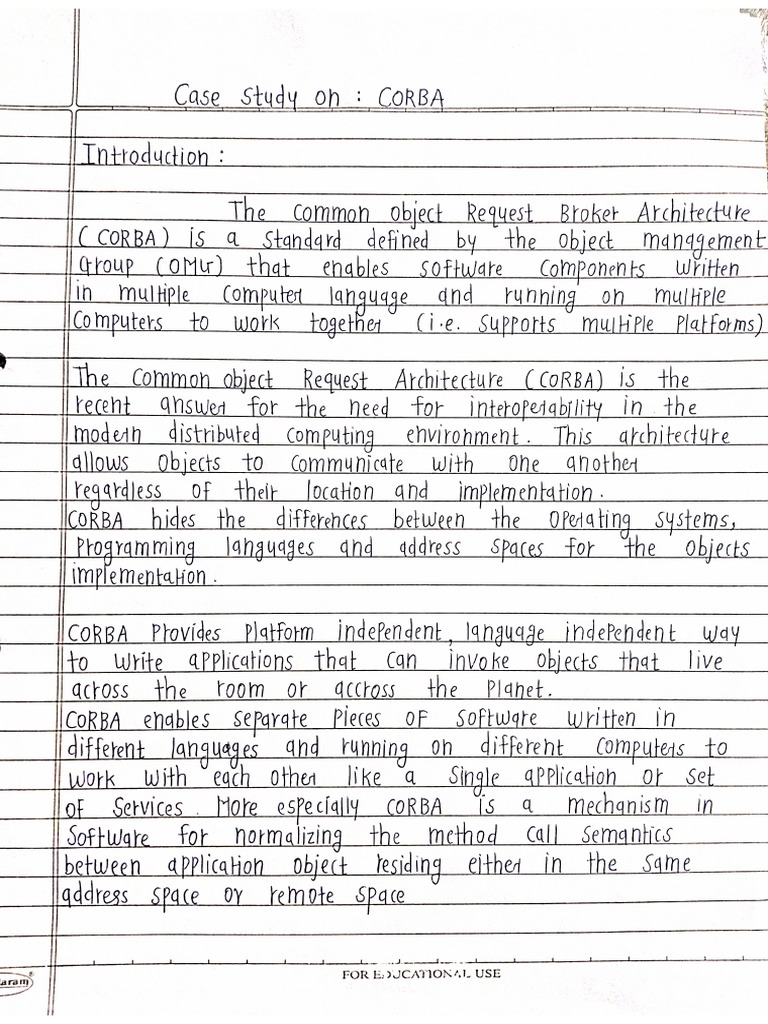 Case Study on : CORBA
Introduction :
The Common Object Request Broker Architecture
(CORBA) is a standard defined by the Object management
Group (OMG) that enables software components written
in multiple computer language and running on multiple
Computers to work together (i.e. supports multiple platforms)
The Common object Request Architecture (CORBA) is the
recent answer for the need for interoperability in the
modern distributed computing environment. This architecture
allows objects to communicate with one another
regardless of their location and implementation.
CORBA hides the differences between the operating systems,
Programming languages and address spaces for the objects
implementation.
CORBA Provides Platform independent, language independent way
to write applications that can invoke objects that live
across the room or accross the planet.
CORBA enables separate pieces of software written in
different languages and running on different computers to
work with each other like a single application or set
of services. More especially CORBA is a mechanism in
Software for normalizing the method call semantics
between application object residing either in the same
address space or remote space
FOR EDUCATIONAL USE
aram®